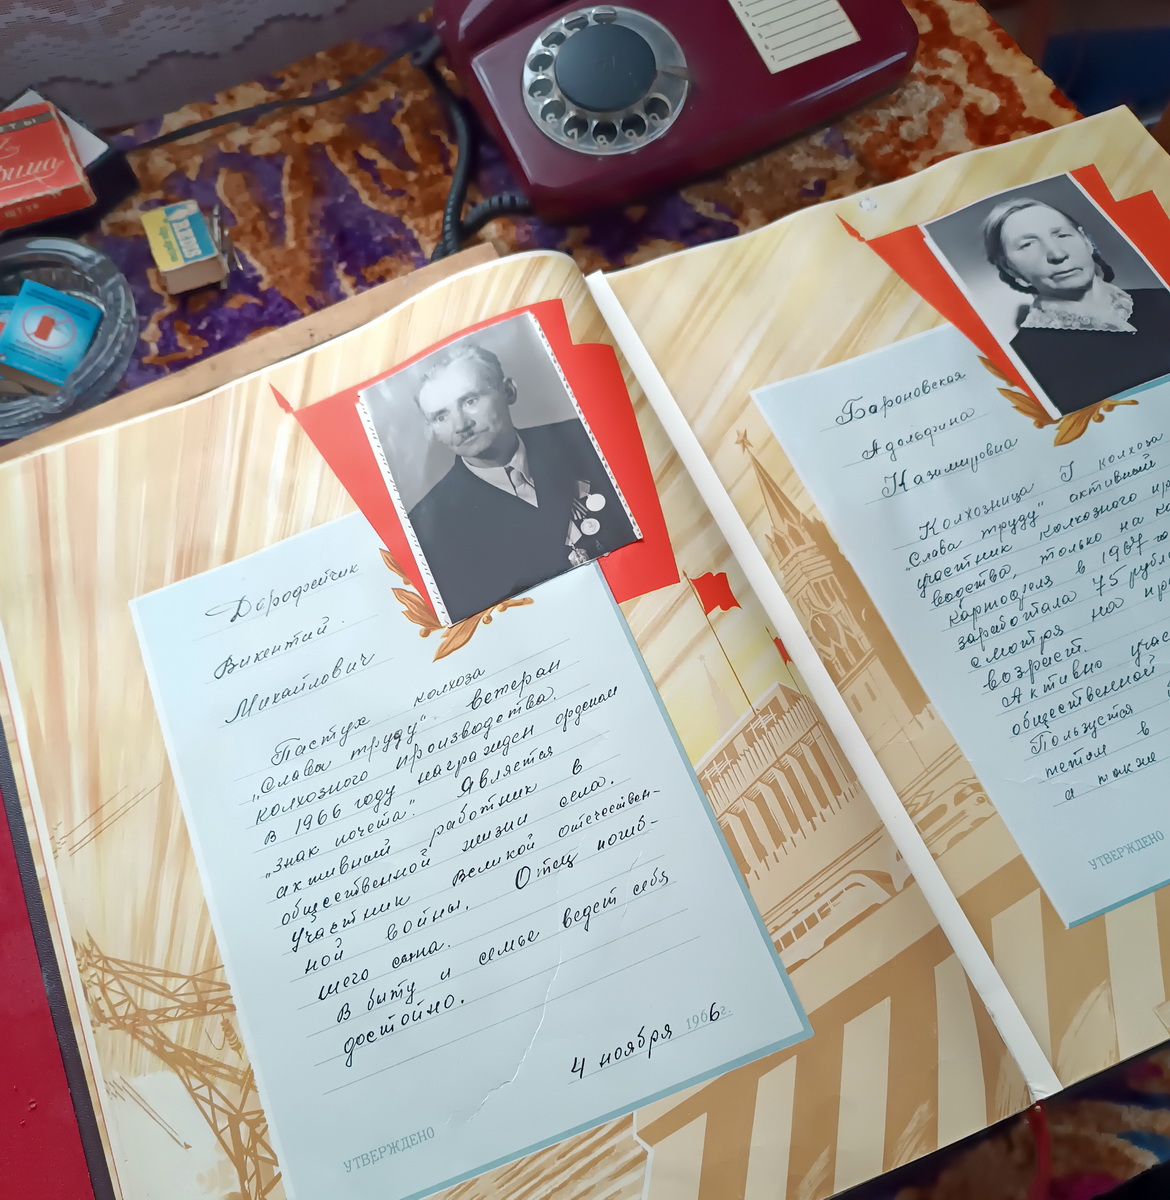 Дарафейчик
Викентий
Михайлович
Пастух колхоза
„Слава труду". ветеран
колхозного производства.
В 1966 году награжден орденом
„знак почета". Является
активный работник в
общественной жизни села.
Участник Великой отечествен-
ной войны. Отец погиб-
шего сына.
В быту и семье ведет себя
достойно.
4 ноября 1966г.
УТВЕРЖДЕНО
Бароновская
Адольфина
Казимировна
Колхозница I колхоза
„Слава труду" активный
участник колхозного
водства, только на
картофеля в 1967
заработала 75
смотря на
возраст.
Активно
общественной
Пользуется
тетом в
а также
УТВЕРЖДЕНО